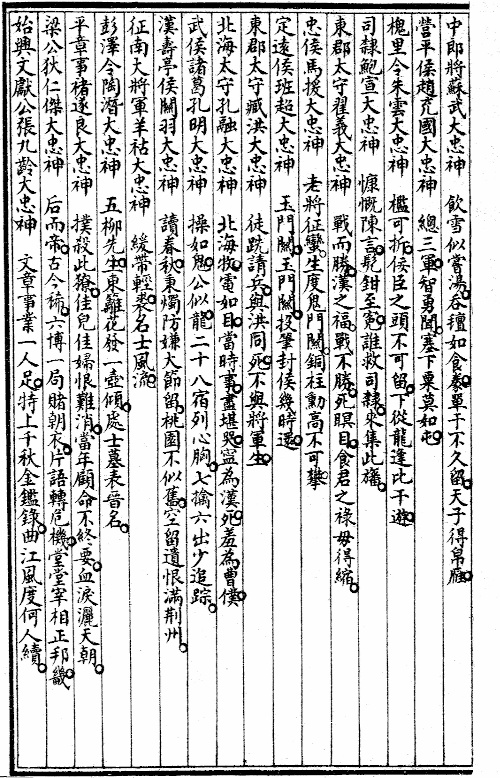 中郎將蘇武大忠神　飲雪似嘗湯吞羶如食黍單于不久留天子得帛雁
營平侯趙充國大忠神　總三軍智勇聞塞下粟莫如屯
槐里令朱雲大忠神　檻可折佞臣之頭不可留下從龍逢比干遊
司隸鮑宣大忠神　慷慨陳言髡鉗至冤誰救司隸來集此旛
東郡太守翟義大忠神　戰而勝漢之福戰不勝死瞑目食君之祿毋得縮
忠侯馬援大忠神　老將征蠻生度鬼門關銅柱勳高不可攀
定遠侯班超大忠神　玉門關玉門關投筆封侯幾時還
東郡太守臧洪大忠神　徒跣請兵與洪同死不與將軍生
北海太守孔融大忠神　北海牧電如目當時事盡堪哭寧為漢死羞為曹僕
武侯諸葛孔明大忠神　操如鬼公似龍二十八宿列心胸七擒六出少追踪
漢壽亭侯關羽大忠神　讀春秋秉燭防嫌大節留桃園不似舊空留遺恨滿荆州
征南大將軍羊祜大忠神　緩帶輕裘名士風流
彭澤令陶潛大忠神　五柳先生東籬花發一壺傾處士墓表晉名
平章事褚遂良大忠神　撲殺此獠佳兒佳婦恨難消當年顧命不終要血淚灑天朝
梁公狄仁傑大忠神　后而帝古今稀六博一局賭朝衣片語轉危機堂堂宰相正邦畿
始興文獻公張九齡大忠神　文章事業一人足特上千秋金鑑錄曲江風度何人續